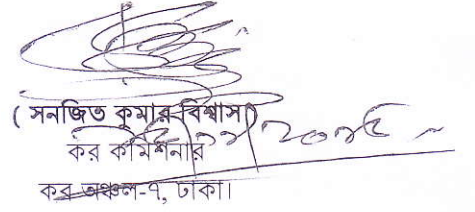 ( সনজিত কুমার বিশ্বাস )
কর কমিশনার
কর অঞ্চল-৭, ঢাকা।